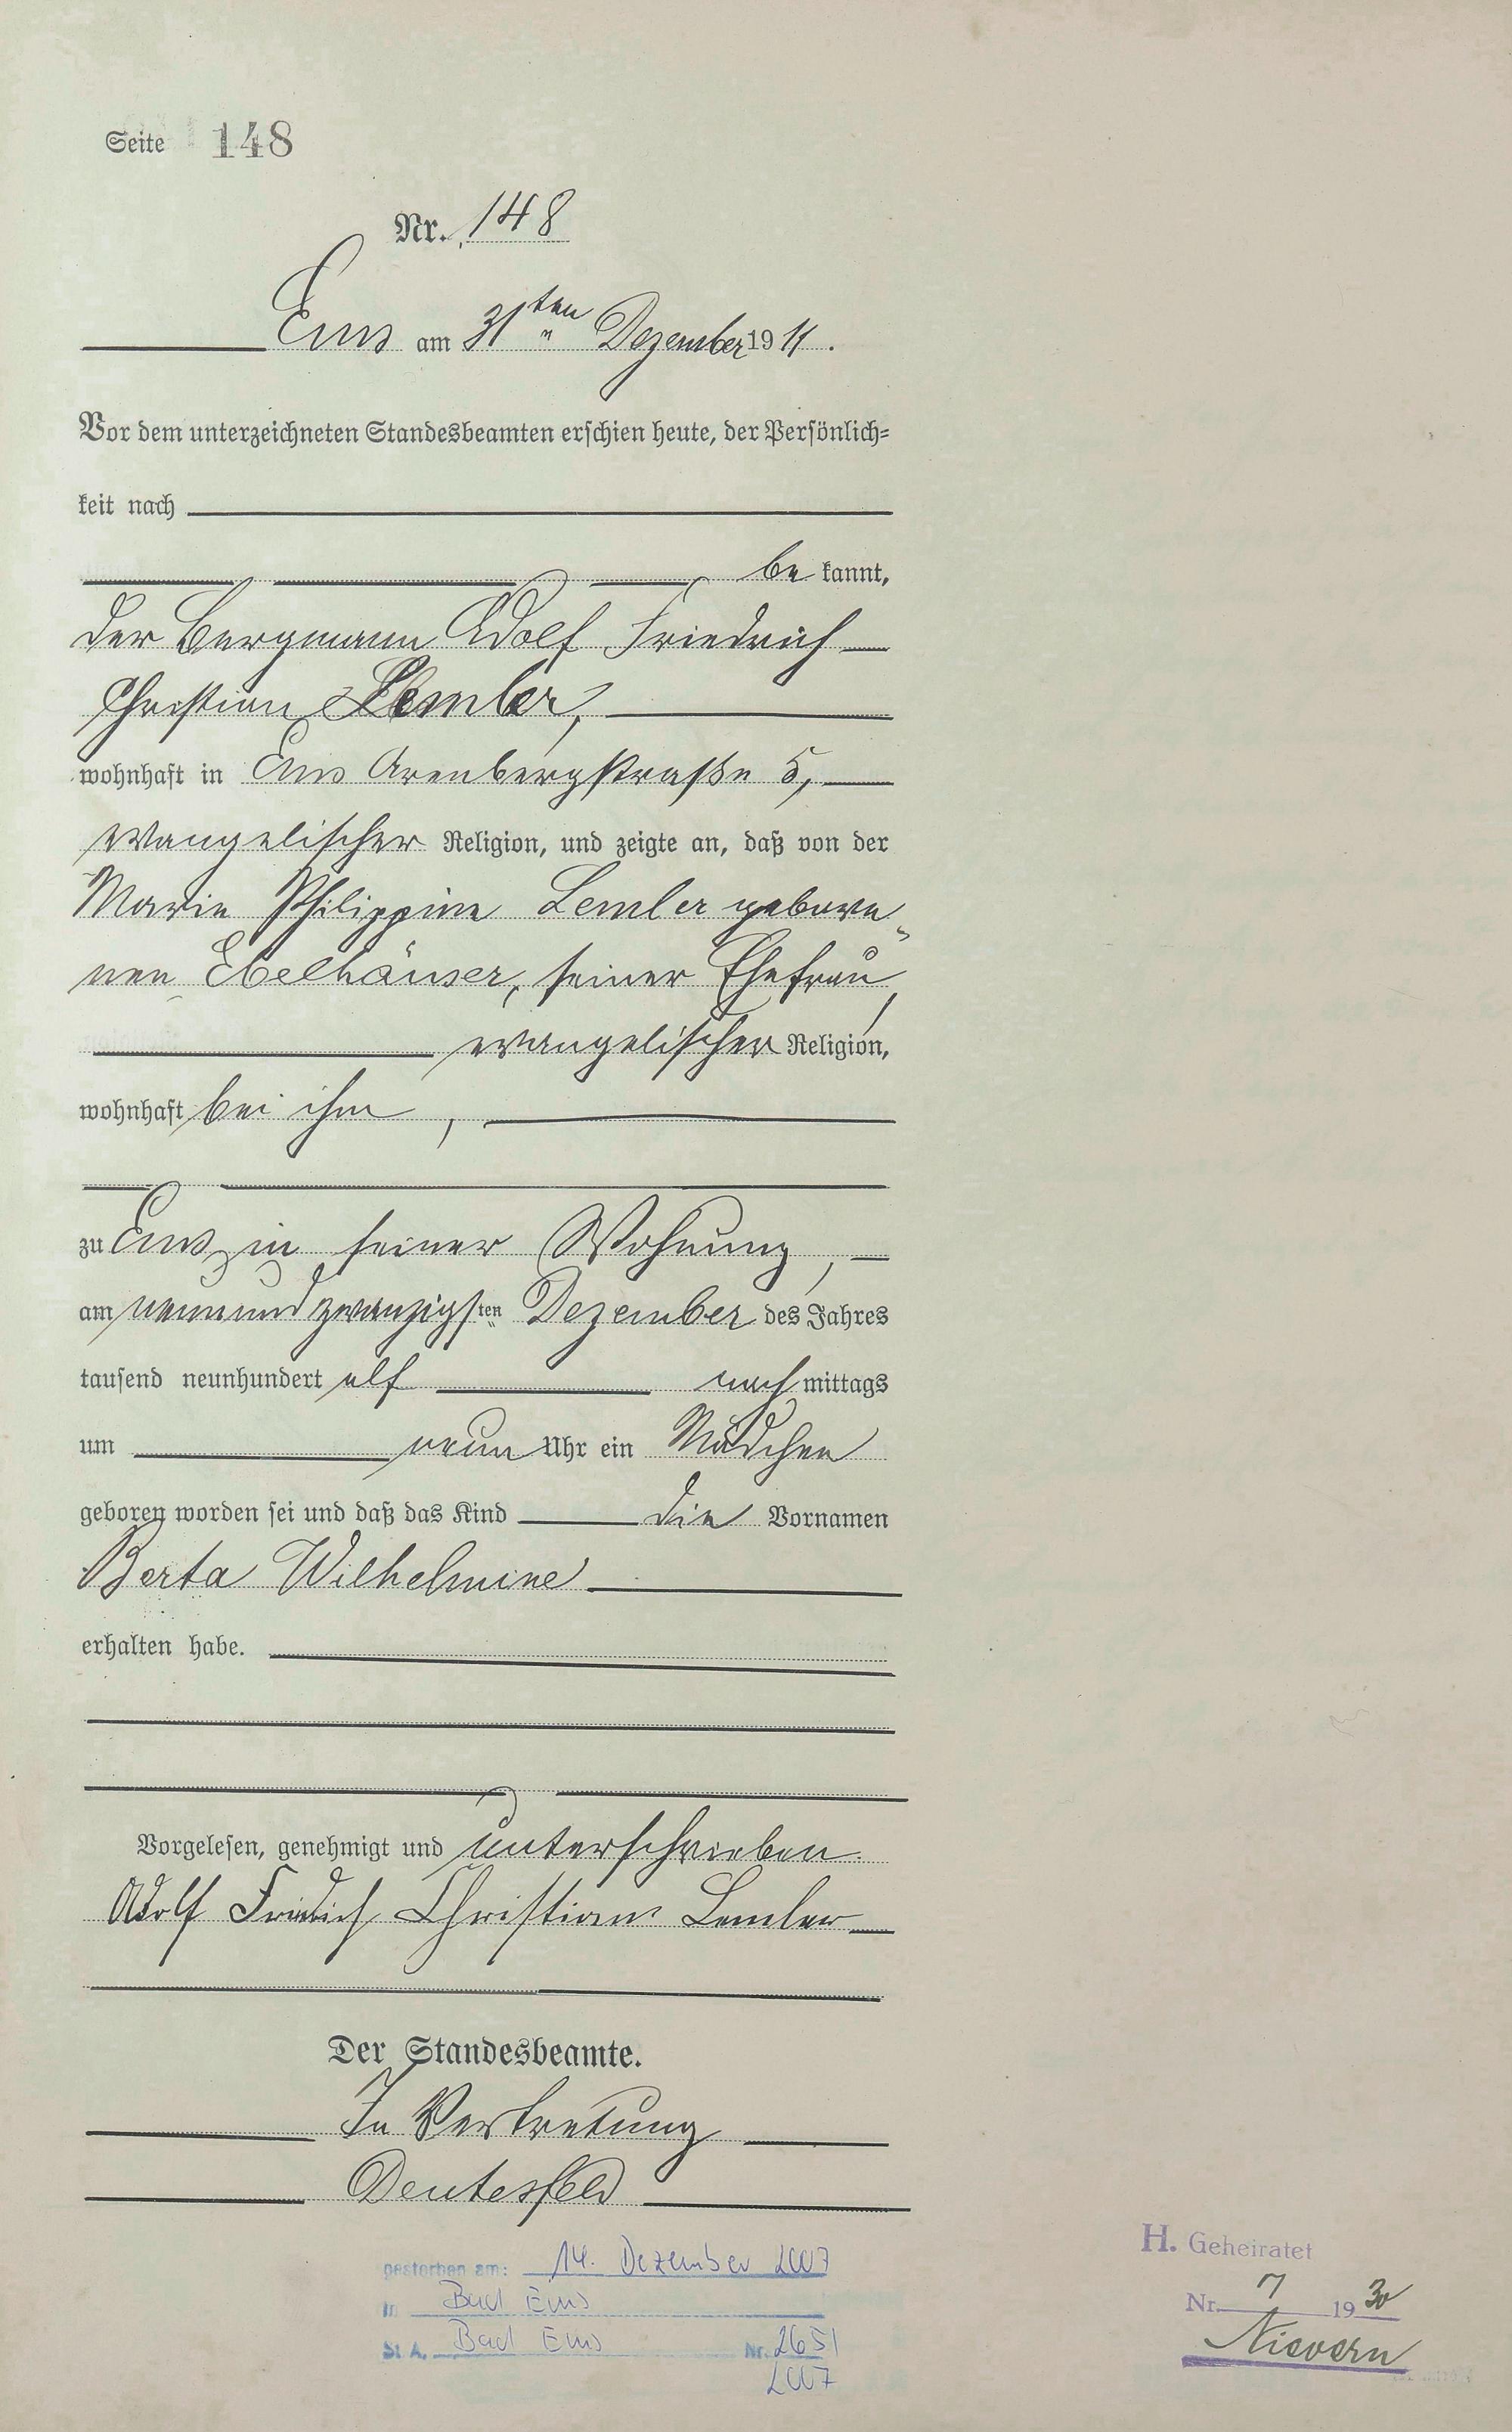 Seite 148
Nr. 148
Ems am 31ten Dezember 1911.
Vor dem unterzeichneten Standesbeamten erschien heute, der Persönlich=
keit nach
be kannt,
der Bergmann Adolf Friedrich
Christian Lemler,
wohnhaft in Ems Arenbergstraße 5,
evangelischer Religion, und zeigte an, daß von der
Marie Philippine Lemler gebore-
nen Ebelhäuser, seiner Ehefrau,
evangelischer Religion,
wohnhaft bei ihm,
zu Ems in seiner Wohnung,
am neunundzwanzigsten Dezember des Jahres
tausend neunhundert elf nach mittags
um neun Uhr ein Mädchen
geboren worden sei und daß das Kind die Vornamen
Berta Wilhelmine
erhalten habe.
Vorgelesen, genehmigt und unterschrieben.
Adolf Friedrich Christian Lemler
Der Standesbeamte.
In Vertretung
Deutesfeld
gestorben am: 14. Dezember 2007
in Bad Ems
St A. Bad Ems Nr. 2651
2007
H. Geheiratet
Nr. 7 1930
Nievern